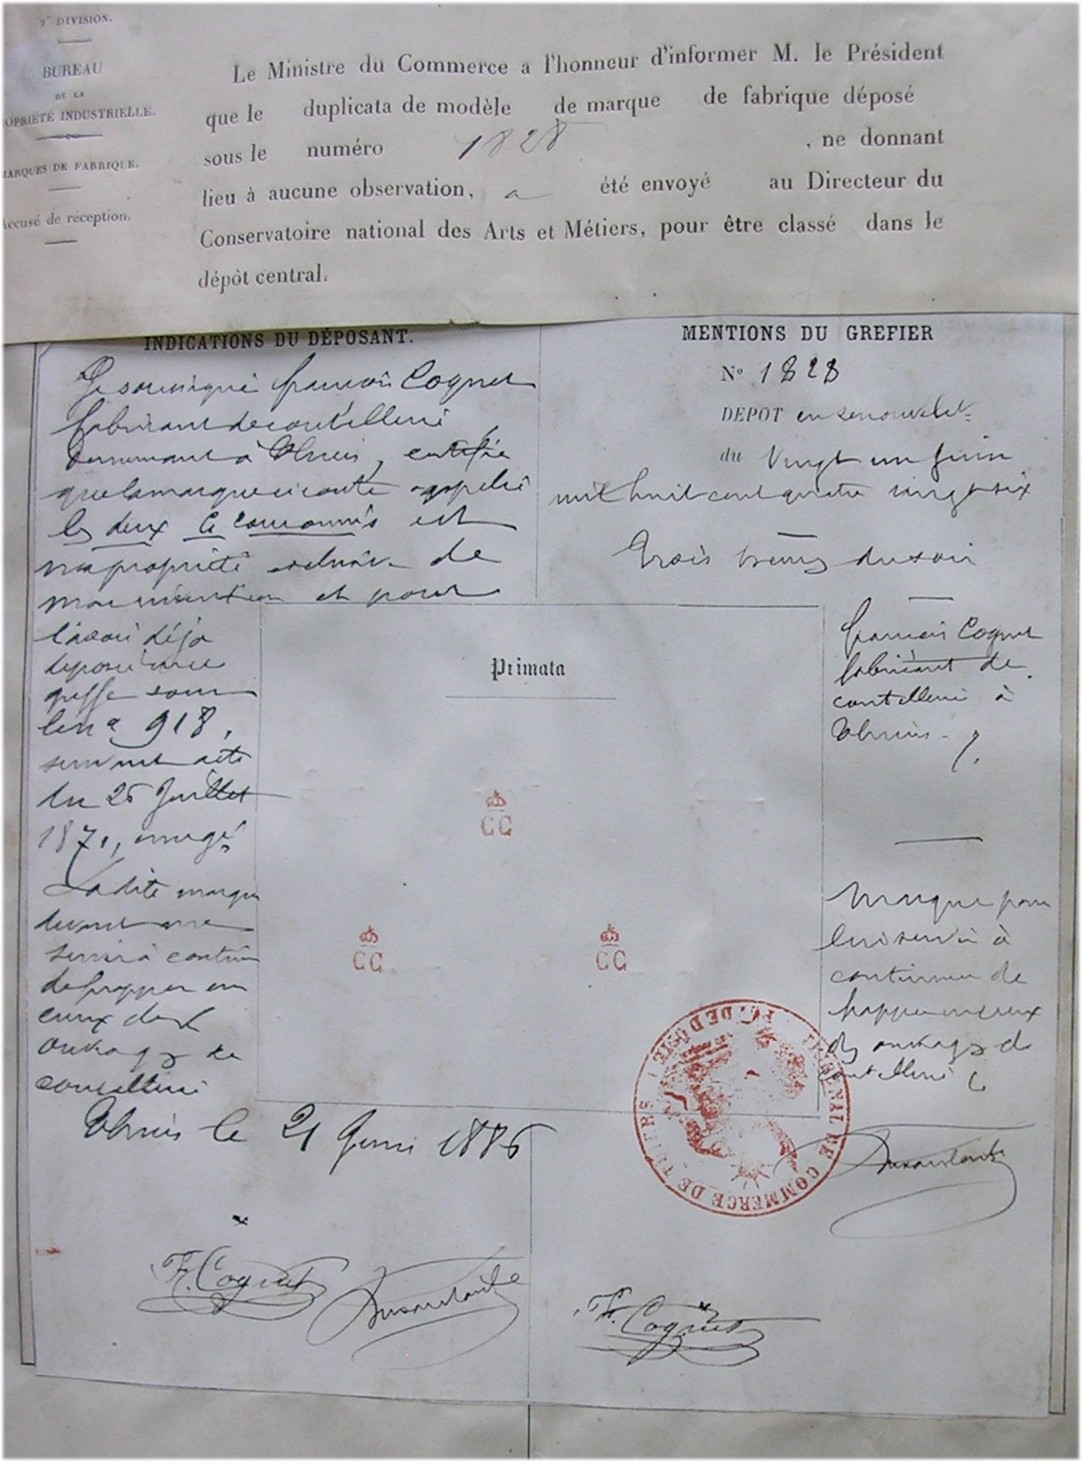 2e DIVISION.
BUREAU
DE LA
PROPRIÉTÉ INDUSTRIELLE.
MARQUES DE FABRIQUE.
Accusé de réception.
Le Ministre du Commerce a l'honneur d'informer M. le Président
que le duplicata de modèle de marque de fabrique déposé
sous le numéro 1828 , ne donnant
lieu à aucune observation, a été envoyé au Directeur du
Conservatoire national des Arts et Métiers, pour être classé dans le
dépôt central.
INDICATIONS DU DÉPOSANT.
Je soussigné françois Cognet
fabricant de coutellerie
demeurant à Thiers, certifie
que la marque ci contre appelée
les deux C couronnés est
ma propriété exclusive de
mon invention et pour
l'avoir déjà
déposée
griffe sous
le no 918,
suivant acte
du 26 Juillet
1871,
Ladite marque
devant me
servir à continuer
de frapper en
creux des
ouvrages de
coutellerie
Thiers le 21 Juin 1886
F. Cognet
MENTIONS DU GREFIER
No 1828
DÉPOT en renouvelt
du Vingt un Juin
mil huit cent quatre vingt six
Trois heures du soir
françois Cognet
fabricant de
coutellerie à
Thiers
Marque pour
lui servir à
continuer de
frapper en creux
des ouvrages de
coutellerie
Primata
CC
CC
CC
TRIBUNAL DE COMMERCE DE THIERS
F. Cognet